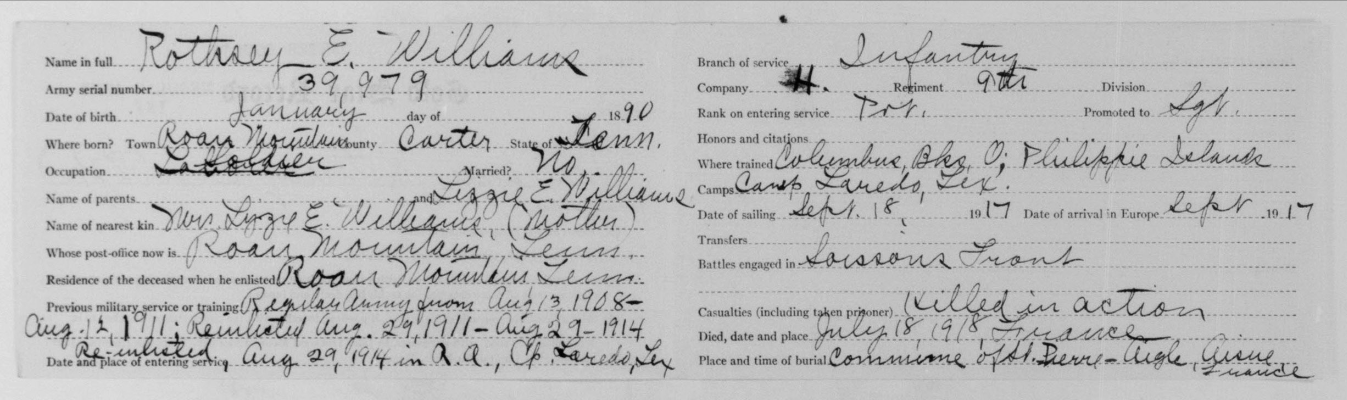 Name in full Rothsey E. Williams
Army serial number 39,979
Date of birth January day of 1890
Where born? Town Roan Mountain County Carter State of Tenn.
Occupation Soldier Married? No.
Name of parents and Lizzie E. Williams
Name of nearest kin Mrs. Lizzie E. Williams, (Mother)
Whose post-office now is Roan Mountain, Tenn.
Residence of the deceased when he enlisted Roan Mountain Tenn.
Previous military service or training Regular Army from Aug 13, 1908-
Aug. 12, 1911; Reinlisted Aug. 29, 1911 - Aug 29 - 1914
Re-inlisted
Date and place of entering service, Aug 29, 1914 in R.A., Cp. Laredo, Tex
Branch of service Infantry
Company H. Regiment 9th Division
Rank on entering service Pvt. Promoted to Sgt.
Honors and citations
Where trained Columbus Bks, O; Philippie Islands
Camps Camp Laredo, Tex.
Date of sailing Sept. 18, 1917 Date of arrival in Europe Sept 1917
Transfers
Battles engaged in Soissons Front
Casualties (including taken prisoner) Killed in action
Died, date and place July 18, 1918, France
Place and time of burial Commune of St. Pierre-Aigle, Aisne,
France